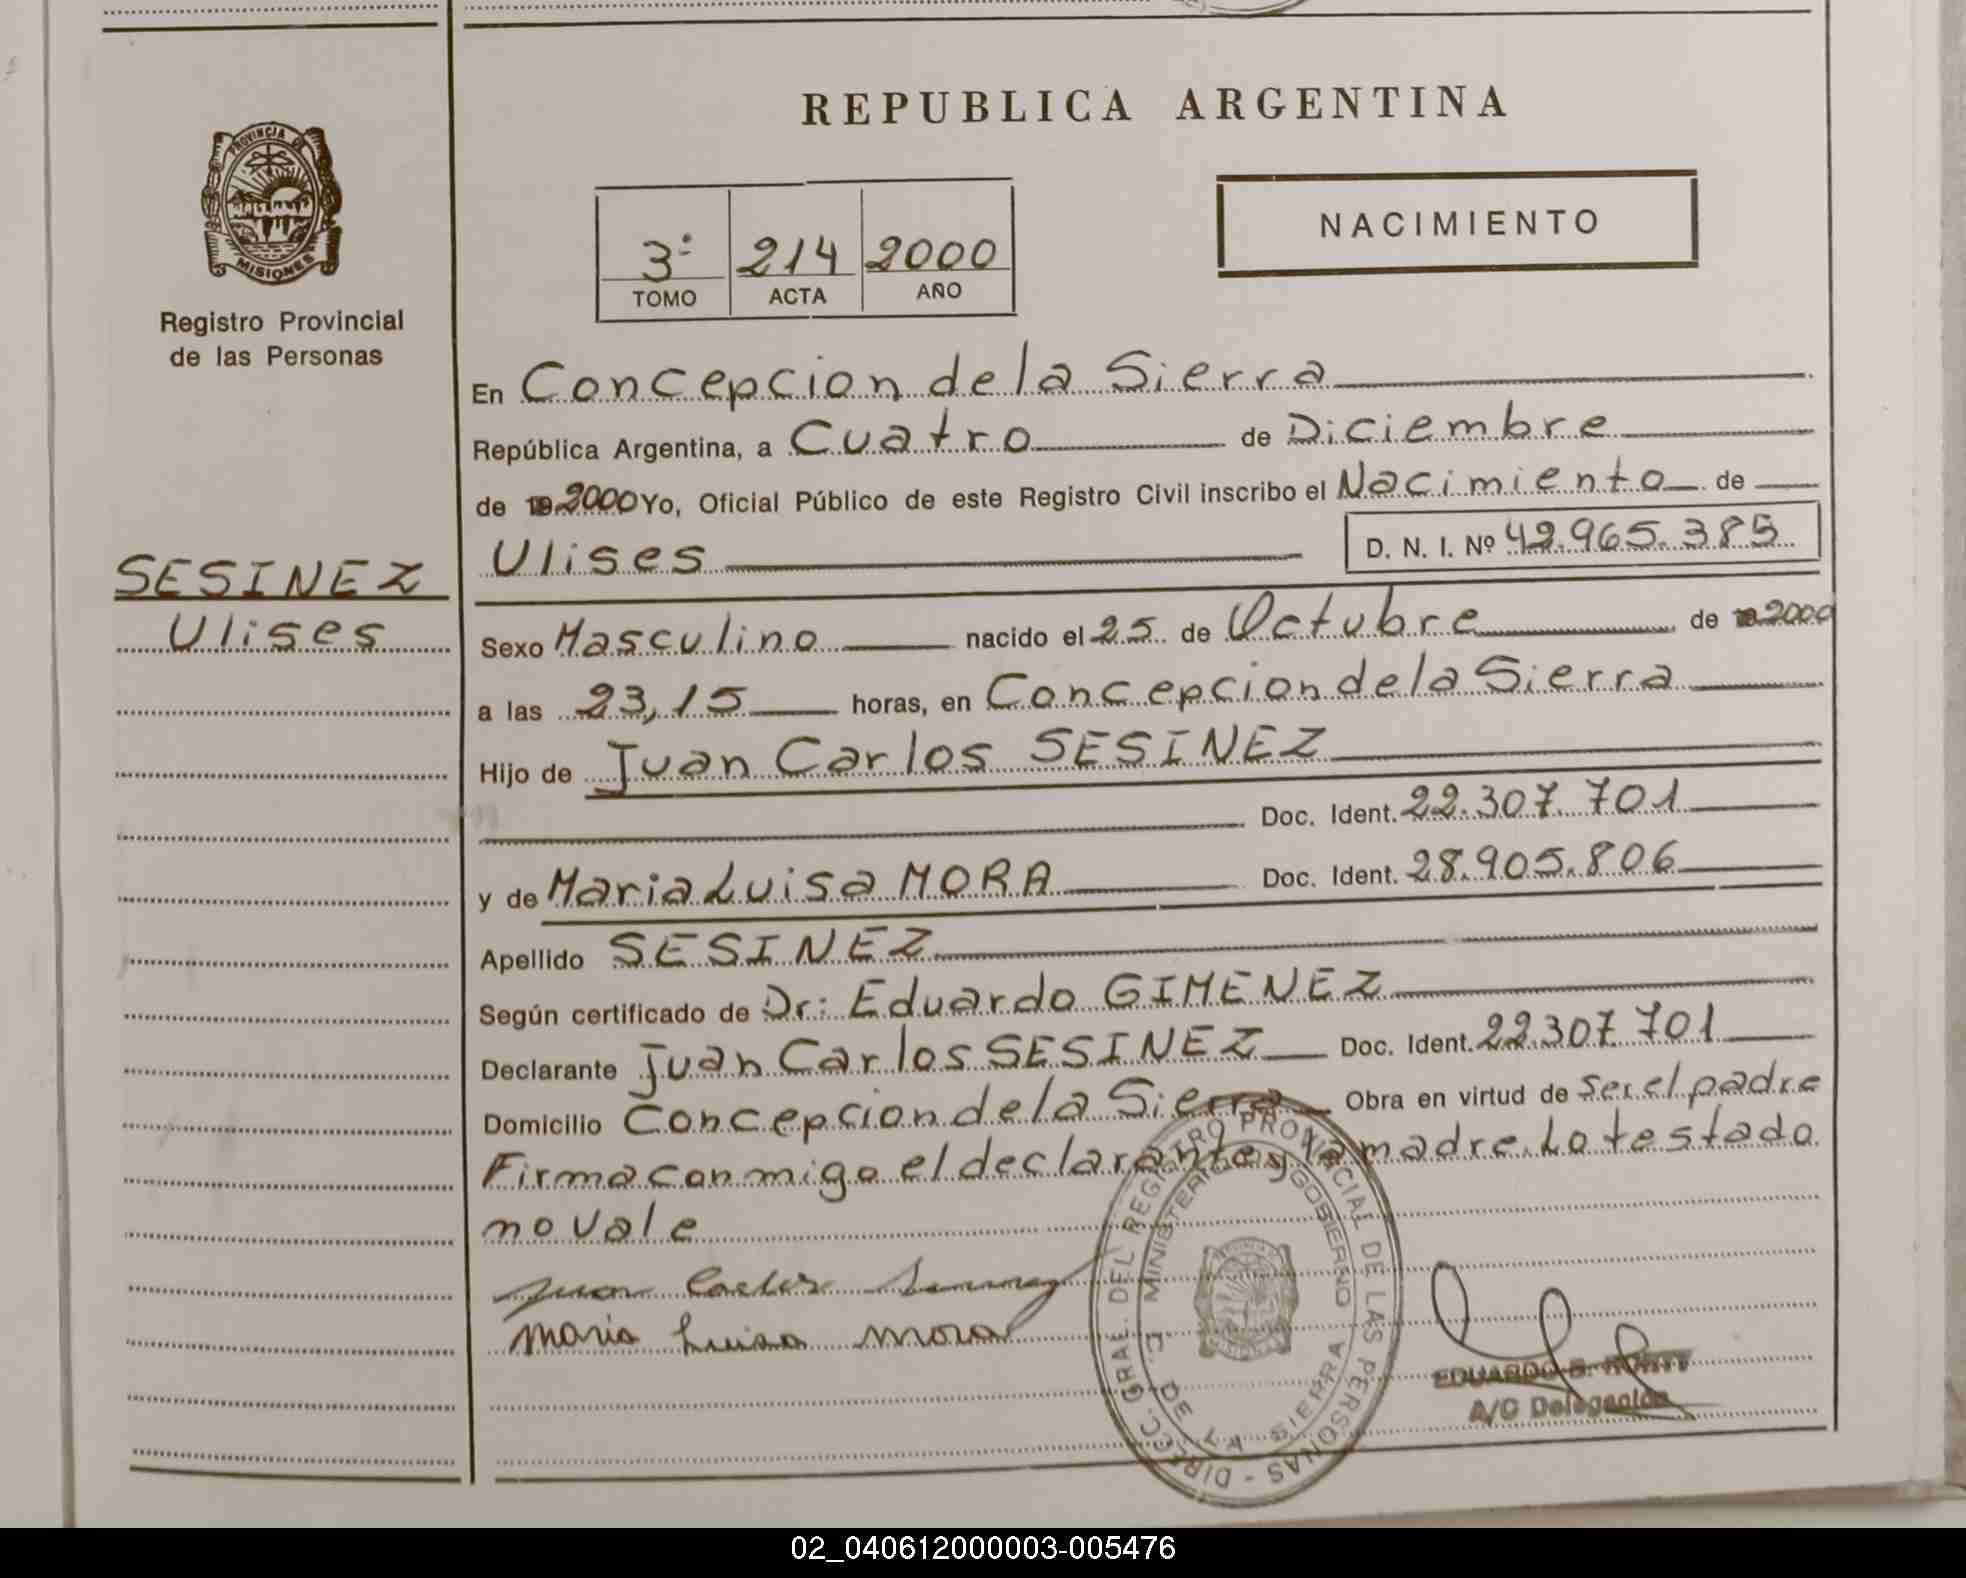 REPUBLICA ARGENTINA
PROVINCIA DE
MISIONES
Registro Provincial
de las Personas
3º 214 2000
TOMO ACTA AÑO
NACIMIENTO
En Concepcion de la Sierra
República Argentina, a Cuatro de Diciembre
de 2000 Yo, Oficial Público de este Registro Civil inscribo el Nacimiento de
Ulises D. N. I. Nº 42.965.385
SESINEZ
Ulises
Sexo Masculino nacido el 25 de Octubre de 2000
a las 23,15 horas, en Concepcion de la Sierra
Hijo de Juan Carlos SESINEZ
Doc. Ident. 22.307.701
y de Maria Luisa MORA Doc. Ident. 28.905.806
Apellido SESINEZ
Según certificado de Dr: Eduardo GIMENEZ
Declarante Juan Carlos SESINEZ Doc. Ident. 22.307.701
Domicilio Concepcion de la Sierra Obra en virtud de Ser el padre
Firma conmigo el declarante y la madre. Lo testado
no vale
Juan Carlos
Maria Luisa Mora
DIRECC. GRAL. DEL REGISTRO PROVINCIAL DE LAS PERSONAS -
MINISTERIO GOBIERNO
C. DE LA SIERRA
EDUARDO
A/C Delegación
02_040612000003-005476